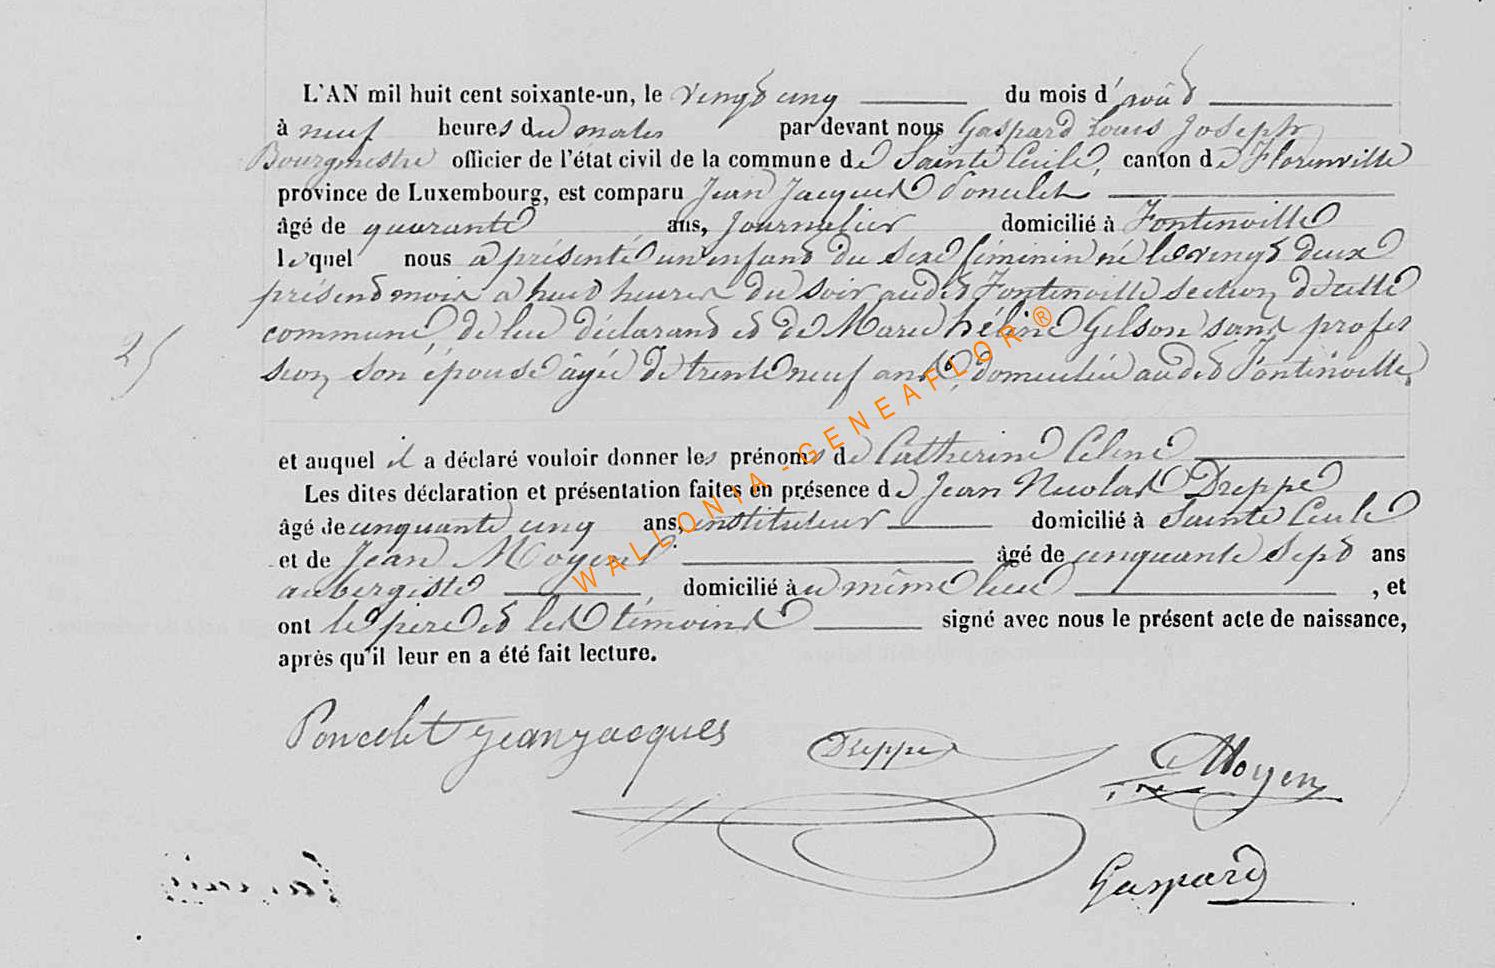 L'AN mil huit cent soixante-un, le vingt cinq du mois d'août
à neuf heures du matin par devant nous Gaspard Louis Joseph
Bourgmestre officier de l'état civil de la commune de Sainte Cécile, canton de Florenville
province de Luxembourg, est comparu Jean Jacques Poncelet
âgé de quarante ans, journalier domicilié à Fontenoille
lequel nous a présenté un enfant du sexe féminin né le vingt deux
présent mois a huit heures du soir audit Fontenoille section de cette
commune, de lui déclarant et de Marie hélène Gilson sans profes
25
sion son épouse âgée de trente neuf ans, domiciliée audit Fontenoille
et auquel il a déclaré vouloir donner les prénoms de Catherine Celine
Les dites déclaration et présentation faites en présence de Jean Nicolas Dreppe
âgé de cinquante cinq ans, instituteur domicilié à Sainte Cecile
et de Jean Moyen âgé de cinquante sept ans
aubergiste, domicilié à u même lieu, et
ont le père et les témoins signé avec nous le présent acte de naissance,
après qu'il leur en a été fait lecture.
Poncelet jean jacques
Dreppe
Moyen
Gaspard
WALLONIA-GENEAFLOR®